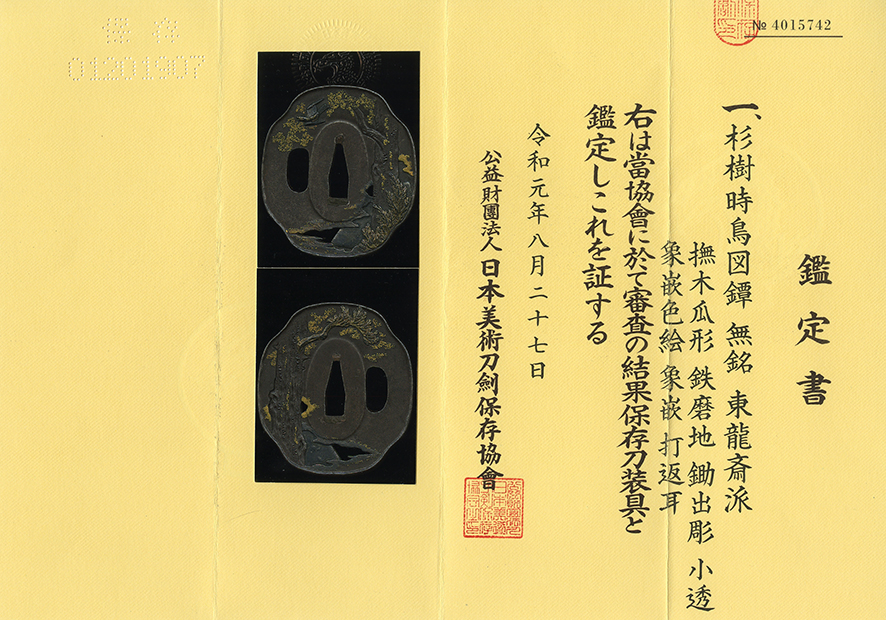 № 4015742
鑑定書
一、杉樹時鳥図鐔 無銘 東龍斎派
撫木瓜形 鉄磨地 鋤出彫 小透
象嵌色絵 象嵌 打返耳
右は當協會に於て審査の結果保存刀装具と
鑑定しこれを証する
令和元年八月二十七日
公益財團法人 日本美術刀劍保存協會
保存
01201907